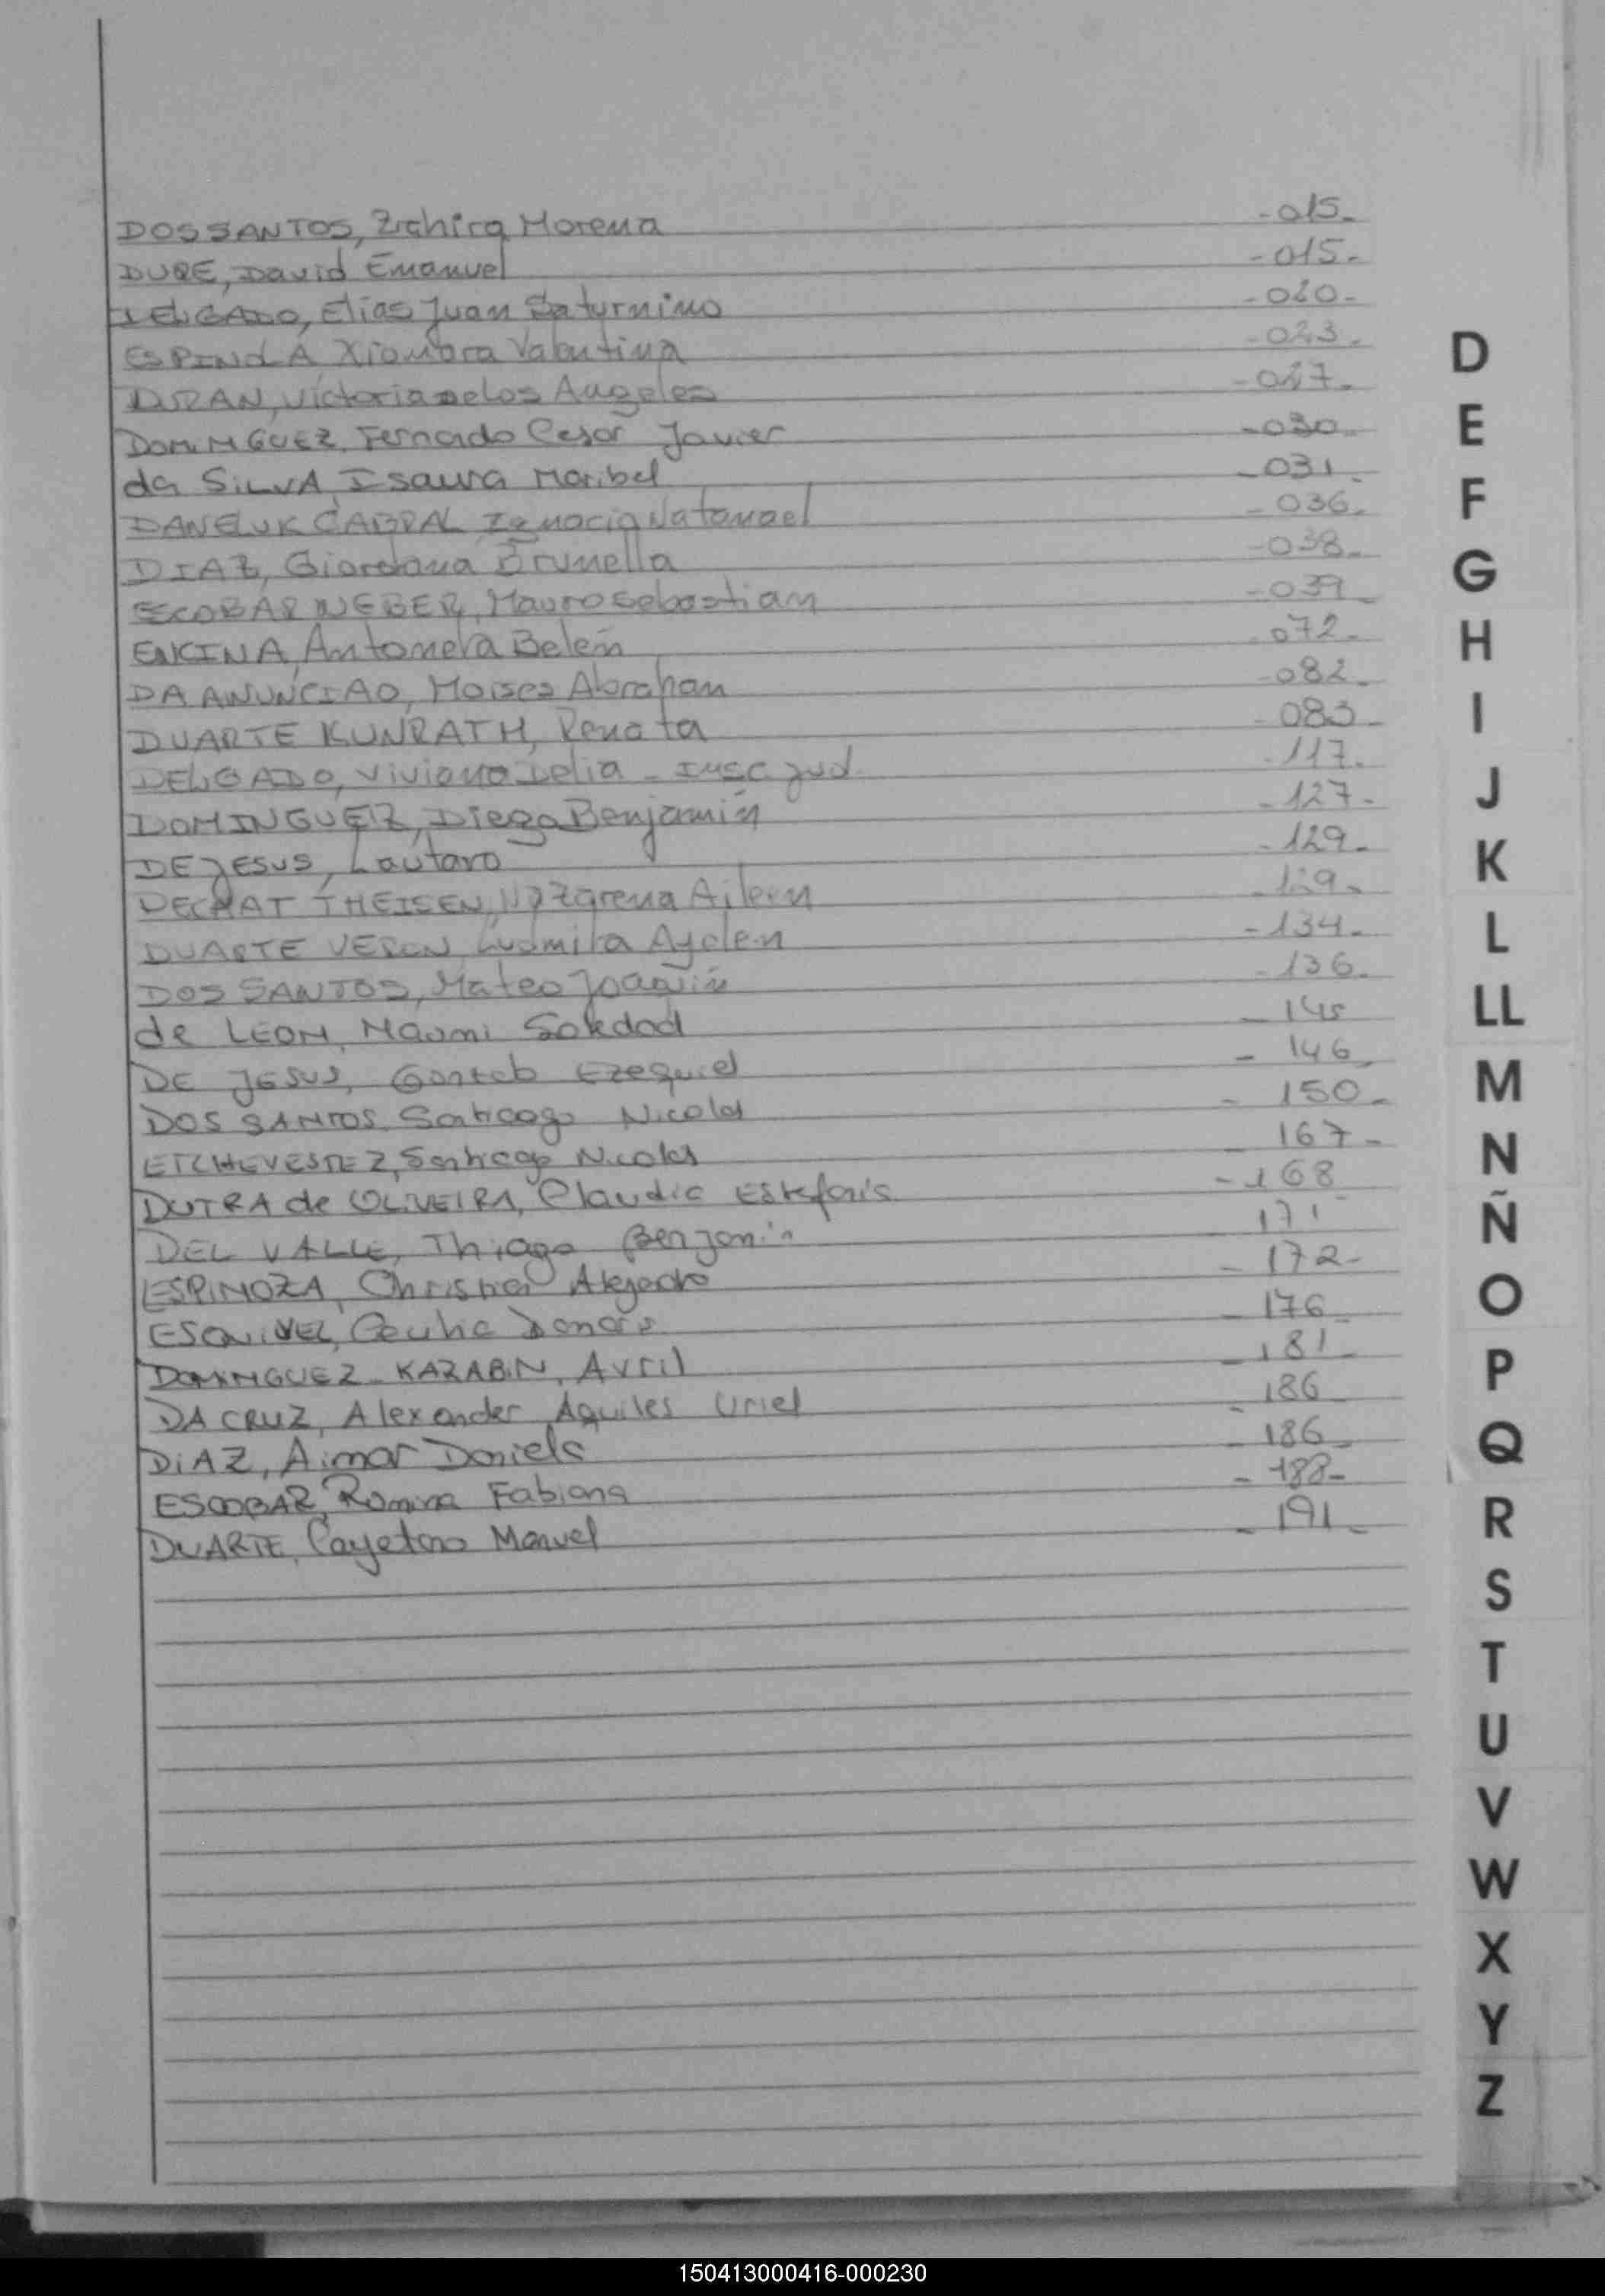 DOS SANTOS, Zahira Morena -015-
DURE, David Emanuel -015-
DELGADO, Elias Juan Saturnino -020-
ESPINOLA Xiomara Valentina -023-
DURAN, Victoria de los Angeles -027-
DOMINGUEZ, Fernando Cesar Javier -030-
da SILVA, Isaura Maribel -031-
DANELUK CABRAL Ignacio Natanael -036-
DIAZ, Giordana Brunella -038-
ESCOBAR WEBER, Mauro Sebastian -039-
ENCINA, Antonela Belén -072-
DA ANUNCIAO, Moises Abrahan -082-
DUARTE KUNRATH, Renata -083-
DELGADO, Viviana Delia - Insc. Jud. -117-
DOMINGUEZ, Diego Benjamín -127-
DE JESUS, Lautaro -129-
DECHAT THEISEN, Nazarena Aileen -129-
DUARTE VERON, Ludmila Aylen -134-
DOS SANTOS, Mateo Joaquín -136-
de LEON, Naomi Soledad - 145
DE JESUS, Ezequiel - 146 -
DOS SANTOS, Santiago Nicolas - 150 -
Santiago Nicolas - 167 -
DUTRA de OLIVEIRA, Claudia - 168
DEL VALLE, Thiago Benjamin 171 -
ESPINOZA, Christian Alejandro - 172 -
ESQUIVEL, Cecilia - 176 -
DOMINGUEZ - KAZABIN, Avril - 181 -
DA CRUZ, Alexander Aquiles Uriel - 186
DIAZ, Aimar Daniela - 186 -
ESCOBAR, Romina Fabiana - 188 -
DUARTE, Cayetano Manuel - 191 -
D
E
F
G
H
I
J
K
L
LL
M
N
Ñ
O
P
Q
R
S
T
U
V
W
X
Y
Z
150413000416-000230